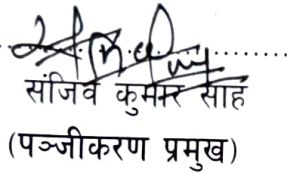 संजिव कुमार साह
(पञ्जीकरण प्रमुख)